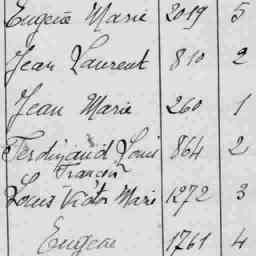 Eugène Marie 2019 5
Jean Laurent 810 2
Jean Marie 260 1
Ferdinand Louis 864 2
Francois
Louis Victor Marie 1272 3
Eugène 1761 4